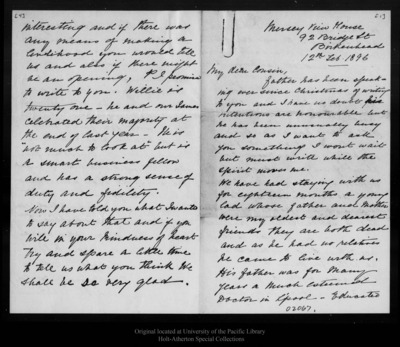 Mersey View House
92 Bridge St
Birkenhead
12th Feb 1896
My dear Cousin,
Father has been speak-
ing ever since Christmas of writing
to you and I have no doubt his
intentions are honourable but
he has been unusually busy
and so as I want to ask
you something I wont wait
but must write while the
spirit moves me.
We have had staying with us
for eighteen months a young
lad whose father and mother
were my oldest and dearest
friends they are both dead
and as he had no relatives
he came to live with us.
His father was for many
years a much esteemed
Doctor in Lpool - Educated
02067.
interesting and if there was
any means of making a
livelihood you would tell
us and also if there might
be an opening, I promised
to write to you. Willie is
twenty one - he and our James
celebrated their majority at
the end of last year - He is
not much to look at but is
a smart business fellow
and has a strong sense of
duty and fidelity.
Now I have told you what I wanted
to say about that and if you
will in your kindness of heart
try and spare a little time
to tell us what you think we
shall be so very glad.
Original located at University of the Pacific Library
Holt-Atherton Special Collections